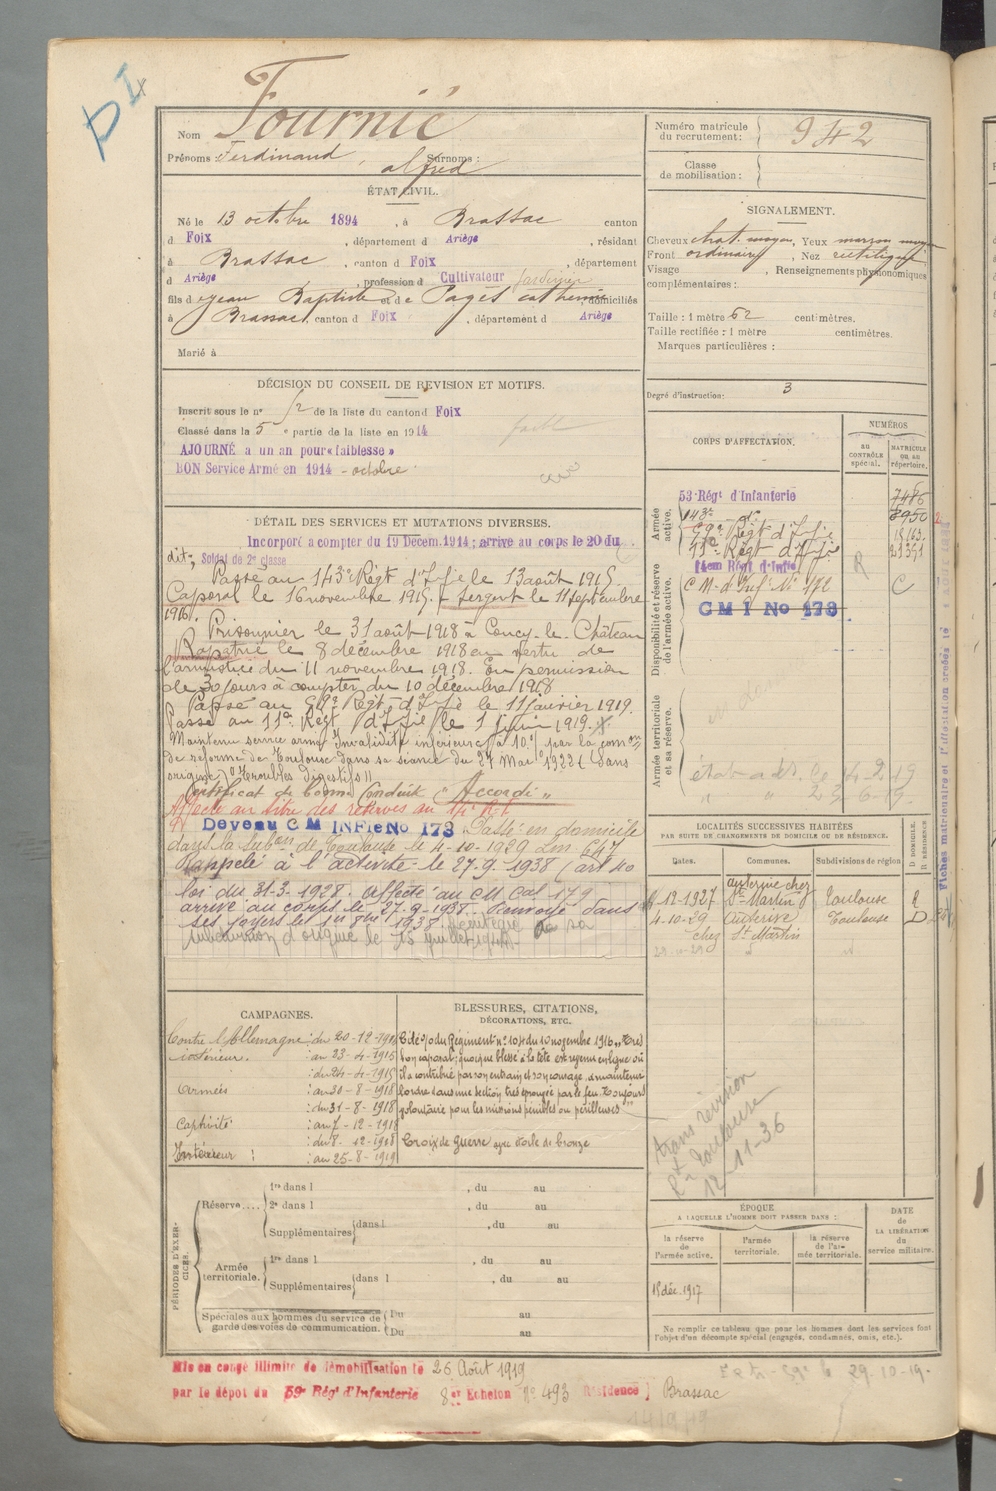 Nom Fournié
Prénoms : Ferdinand, Alfred Surnoms :
ÉTAT CIVIL.
Né le 13 octobre 1894, à Brassac canton
d Foix, département d Ariège, résidant
à Brassac, canton d Foix, département
d Ariège, profession d Cultivateur jardinier
fils d e Jean Baptiste et de Pagès Catherine domiciliés
à Brassac, canton d Foix, département d Ariège
Marié à
Numéro matricule du recrutement : 942
Classe de mobilisation :
SIGNALEMENT.
Cheveux chat. moyen, Yeux marron moyen
Front ordinaire, Nez rectiligne
Visage , Renseignements physionomiques
complémentaires :
Taille : 1 mètre 62 centimètres.
Taille rectifiée : 1 mètre centimètres.
Marques particulières :
Degré d'instruction : 3
DÉCISION DU CONSEIL DE REVISION ET MOTIFS.
Inscrit sous le n° 52 de la liste du canton d Foix
Classé dans la 5e partie de la liste en 1914
faible
AJOURNÉ a un an pour « faiblesse »
BON Service Armé en 1914 - octobre
DÉTAIL DES SERVICES ET MUTATIONS DIVERSES.
Incorporé a compter du 19 Décem. 1914 ; arrive au corps le 20 du
dit ; Soldat de 2e classe
Passé au 143e Régt d'Infie le 13 août 1915.
Caporal le 16 novembre 1915. Sergent le 11 septembre
1916.
Prisonnier le 31 août 1918 à Coucy-le-Château
Rapatrié le 8 décembre 1918 en vertu de
l'armistice du 11 novembre 1918. En permission
de 30 jours à compter du 10 décembre 1918
Passé au 59e Régt d'Infie le 11 janvier 1919.
Passé au 11e Régt d'Infie le 1 juin 1919.
Maintenu service armé Invalidité inférieure à 10% par la comon
de réforme de Toulouse dans sa séance du 24 Mai 1923 (Sans
origine) (Troubles digestifs)
Certificat de bonne Conduite "Accordé"
Affecté au titre des réserves au 14e R.I.
Devenu C M INFie No 173 Passé en domicile
dans la Subon de Toulouse le 4-10-1929 Lm 647
Rappelé à l'activité le 27-9-1938 (art 40
loi du 31-3-1928. Affecté au CM Col 179
arrivé au corps le 27-9-1938. Renvoyé dans
ses foyers le 1938. Réintégré sa
subdivision d'origine le 15 juillet
CORPS D'AFFECTATION.
NUMÉROS
AU CONTRÔLE spécial.
MATRICULE OU AU répertoire.
Armée active.
53e Régt d'Infanterie 7486
143e do 8950
59e Régt d'Infie 18163
11e Régt d'Infie 21351
Disponibilité et réserve de l'armée active.
14em Régt d'Infie R
C M d'Inf No 172 C
C M I No 173
Armée territoriale et sa réserve.
état a 4-2-19
" " 23-6-19
LOCALITÉS SUCCESSIVES HABITÉES
PAR SUITE DE CHANGEMENTS DE DOMICILE OU DE RÉSIDENCE.
Dates. Communes. Subdivisions de région D. DOMICILE. R. RÉSIDENCE.
12-1927 Auterive chez St Martin Toulouse R
4-10-29 Auterive Toulouse D
chez St Martin
CAMPAGNES.
Contre l'Allemagne : du 20-12-1914
intérieur. : au 23-4-1915
: du 24-4-1915
Armées : au 30-8-1918
: du 31-8-1918
Captivité : au 7-12-1918
: du 8-12-1918
Intérieur : : au 25-8-1919
BLESSURES, CITATIONS,
DÉCORATIONS, ETC.
Cité o/o du Régiment n° 104 du 10 novembre 1916 "Très
bon caporal ; quoique blessé à la tête est revenu en ligne où
il a contribué par son entrain et son courage, à maintenir
l'ordre dans une section très éprouvée par le feu. Toujours
volontaire pour les missions pénibles ou périlleuses"
Croix de guerre avec étoile de bronze
trans révision
Toulouse
12-11-36
PÉRIODES D'EXERCICES.
Réserve....
1re dans l , du au
2e dans l , du au
Supplémentaires dans l , du au
Armée territoriale.
1re dans l , du au
Supplémentaires dans l , du au
Spéciales aux hommes du service de garde des voies de communication.
Du au
Du au
ÉPOQUE
A LAQUELLE L'HOMME DOIT PASSER DANS :
la réserve de l'armée active.
l'armée territoriale.
la réserve de l'armée territoriale.
DATE de LA LIBÉRATION du service militaire.
15 déc. 1917
Ne remplir ce tableau que pour les hommes dont les services font
l'objet d'un décompte spécial (engagés, condamnés, omis, etc.).
Mis en congé illimité de démobilisation le 26 Août 1919
par le dépôt du 59e Régt d'Infanterie 8er Echelon No 493 Résidence Brassac
29-10-19